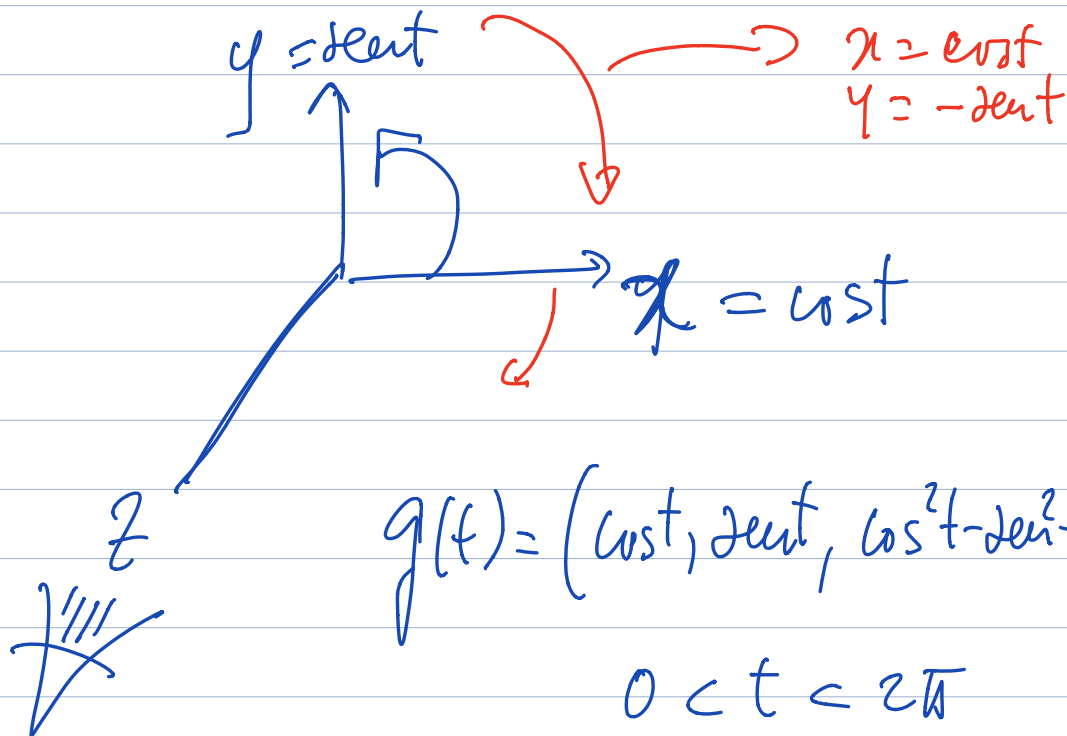 y = sent
x = cost
y = -sent
x = cost
z
g(t) = (cost, sent, cos²t - sen²
0 < t < 2π